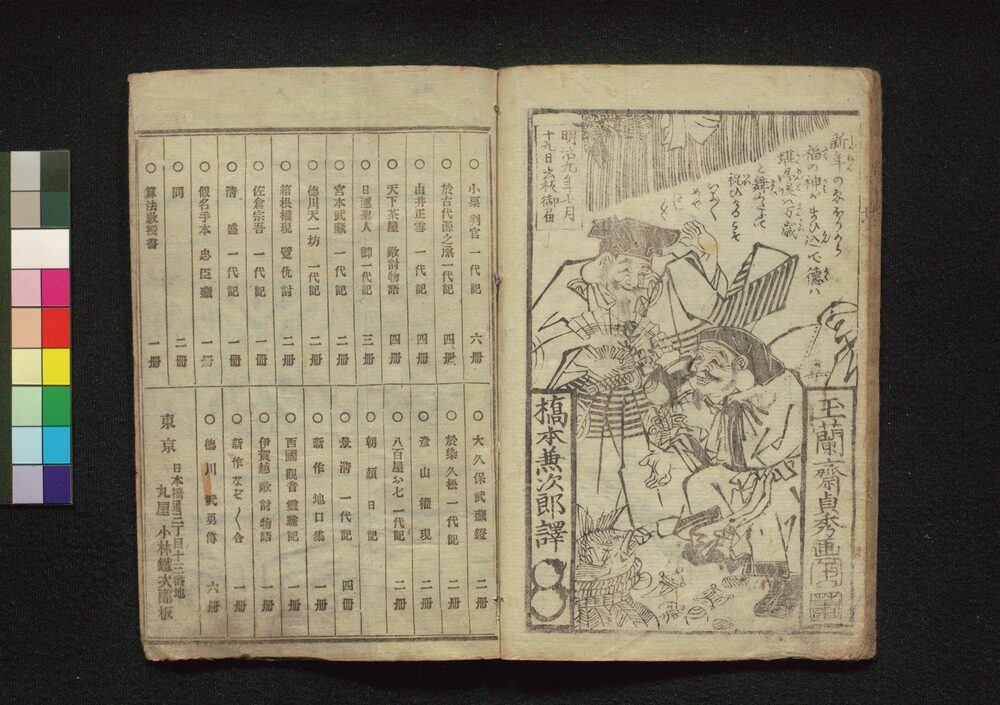 明治九年七月
十九日出板御届
新年の衣
福の神が
万歳
玉蘭齋貞秀画
橋本兼次郎譯
○小栗判官一代記 六冊
○於古代源之丞一代記 四冊
○由井正雪一代記 四冊
○天下茶屋敵討物語 四冊
○日蓮聖人御一代記 三冊
○宮本武藏一代記 二冊
○德川天一坊一代記 二冊
○箱根權現躄仇討 二冊
○佐倉宗吾一代記 一冊
○清盛一代記 一冊
○假名手本忠臣藏 一冊
○同 二冊
○算法教授書 一冊
○大久保武藏鐙 二冊
○於染久松一代記 二冊
○彦山權現 二冊
○八百屋お七一代記 二冊
○朝顔日記
○景清一代記 四冊
○新作地口集 一冊
○西國觀音靈驗記 一冊
○伊賀越敵討物語 一冊
○新作なぞ〱合 一冊
○德川武勇傳 六冊
東京 日本橋通三丁目十三番地
丸屋 小林鐵次郎板